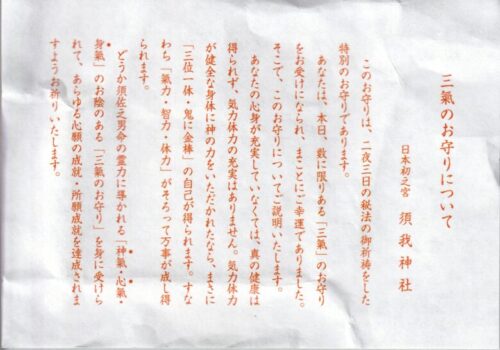 三氣のお守りについて
日本初之宮 須我神社
このお守りは、二夜三日の秘法の御祈祷をした
特別のお守りであります。
あなたは、本日、数に限りある「三氣」のお守り
をお受けになられ、まことにご幸運でありました。
そこで、このお守りについてご説明いたします。
あなたの心身が充実していなくては、真の健康は
得られず、気力体力の充実はありません。気力体力
が健全な身体に神の力をいただかれたなら、まさに
「三位一体・鬼に金棒」の自己が得られます。すな
わち「氣力・智力・体力」がそろって万事が成し得
られます。
どうか須佐之男命の霊力に導かれる「神氣・心氣・
身氣」のお陰のある「三氣のお守り」を身に受けら
れて、あらゆる心願の成就・所願成就を達成されま
すようお祈りいたします。